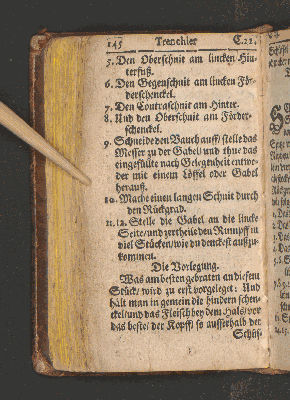 145 Trenchier C.22.
5. Den Oberschnit am lincken Hin-
terfuß.
6. Den Gegenschnit am lincken För-
derschenckel.
7. Den Contraschnit am Hinter.
8. Und den Oberschnit am Förder-
schenckel.
9. Schneide den Bauch auff/ stelle das
Messer zu der Gabel und thue das
eingefüllte nach Gelegenheit entwe-
der mit einem Löffel oder Gabel
herauß.
10. Mache einen langen Schnit durch
den Rückgrad.
11. 12. Stelle die Gabel an die lincke
Seite/ und zertheile den Rumpff in
viel Stücken/ wie du denckest außzu-
kommen.
Die Vorlegung.
Was am besten gebraten an diesem
Stück/ wird zu erst vorgeleget: Und
hält man in gemein die hindern schen-
ckel/ und das Fleisch bey dem Hals/ vor
das beste/ der Kopff/ so ausserhalb der
Schüs-